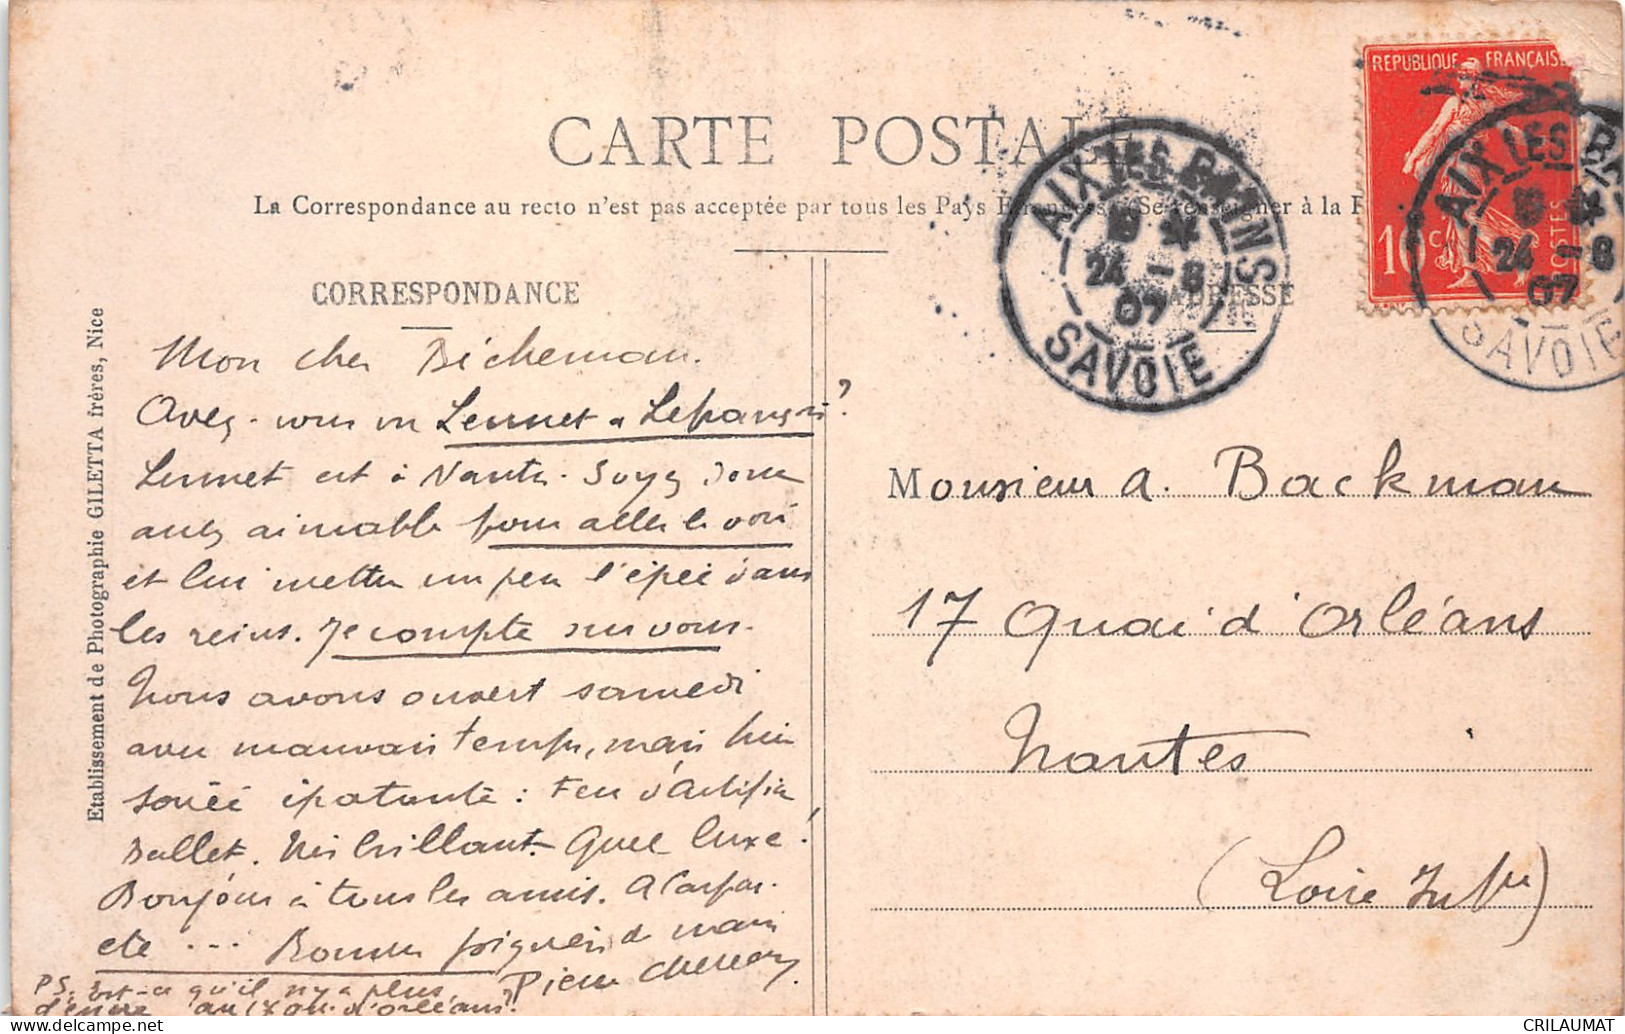 CARTE POSTALE
La Correspondance au recto n'est pas acceptée par tous les Pays Etrangers (Se renseigner à la
CORRESPONDANCE
ADRESSE
Etablissement de Photographie GILETTA frères, Nice
REPUBLIQUE FRANÇAISE
10 c.
POSTES
AIX LES BAINS
24 - 8
07
SAVOIE
AIX LES BAINS
24 - 8
07
SAVOIE
Mon cher Bicheman.
Avez-vous vu Lennet à Lepangni?
Lennet est à Nantes. Soyez donc
assez aimable pour aller le voir
et lui mettre un peu l'épée dans
les reins. Je compte sur vous.
Nous avons ouvert samedi
avec mauvais temps, mais hier
soirée épatante : Feu d'Artifice
Ballet. très brillant. Quel luxe!
Bonjour à tous les amis. A Caspar.
etc ... Bonnes poignées de main
Pierre
PS. Est-ce qu'il n'y a plus
d'encre au 17 Quai d'orléans?
Monsieur A. Backman
17 Quai d'Orléans
Nantes
(Loire Infre)
CRILAUMAT